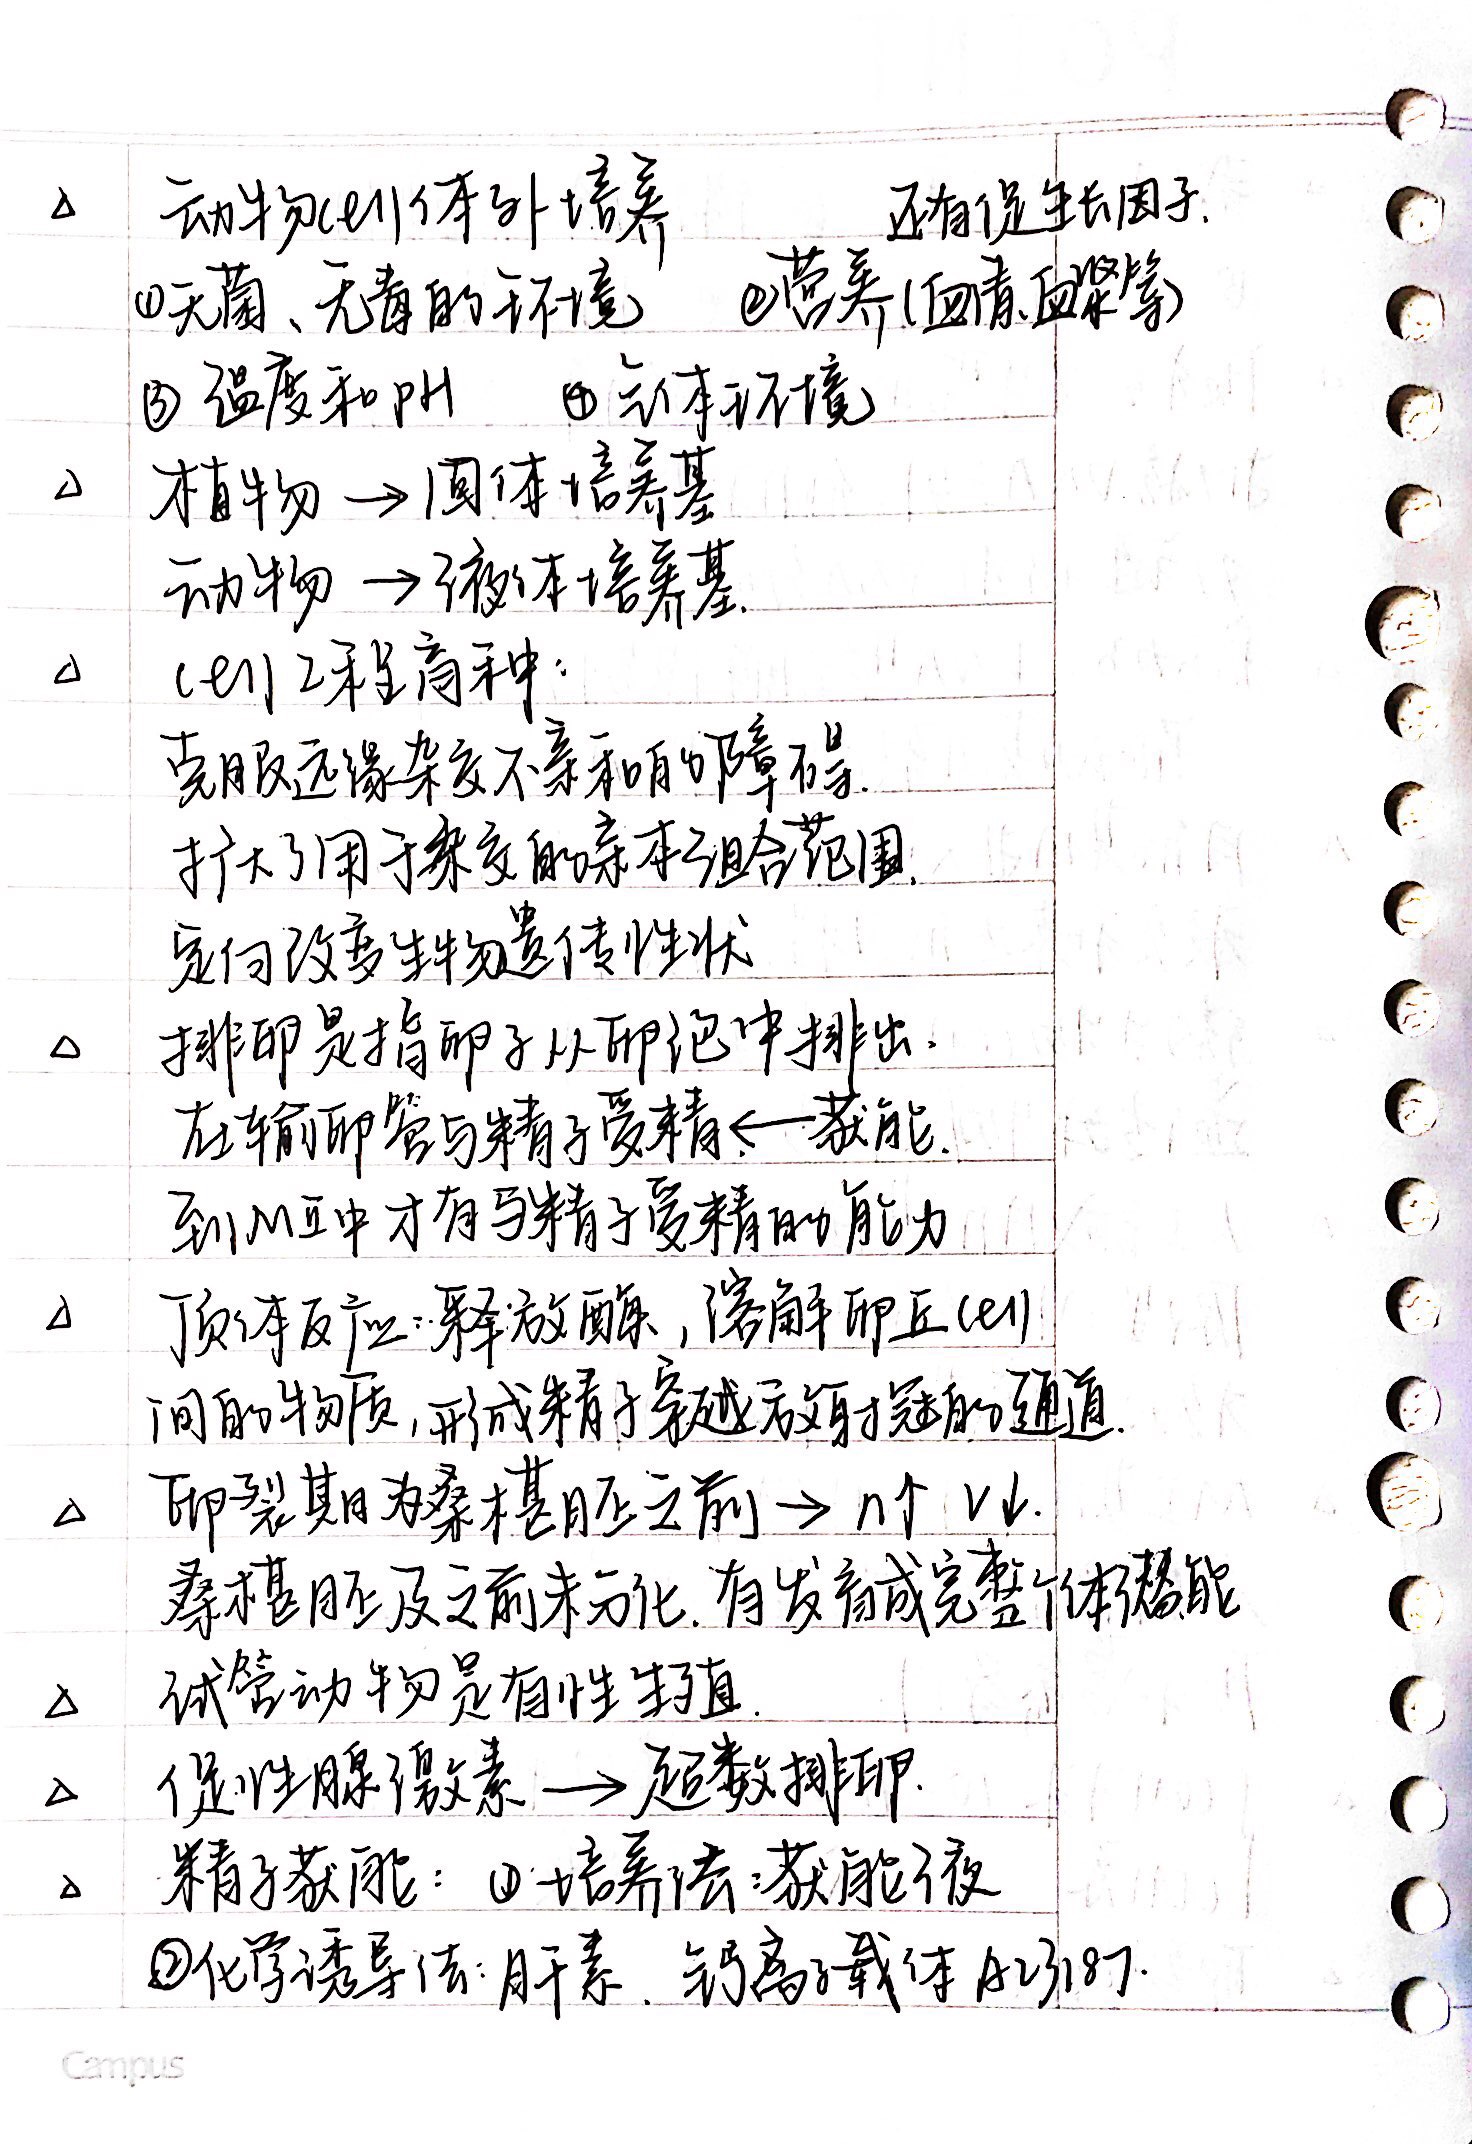 △ 动物cell体外培养 还有促生长因子.
①无菌、无毒的环境 ②营养(血清、血浆等)
③温度和pH ④气体环境
△ 植物→固体培养基
动物→液体培养基.
△ cell工程育种:
克服远缘杂交不亲和的障碍.
扩大了用于杂交的亲本组合范围.
定向改变生物遗传性状
△ 排卵是指卵子从卵泡中排出.
在输卵管与精子受精←获能.
到MⅡ中才有与精子受精的能力
△ 顶体反应:释放酶,溶解卵丘cell
间的物质,形成精子穿越放射冠的通道.
△ 卵裂期为桑椹胚之前→n↑ V↓.
桑椹胚及之前未分化.有发育成完整个体潜能
△ 试管动物是有性生殖.
△ 促性腺激素→超数排卵.
△ 精子获能:①培养法:获能液
②化学诱导法:肝素、钙离子载体A23187.
Campus